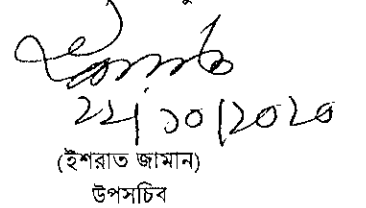 ২২/১০/২০২০
(ইশরাত জামান)
উপসচিব